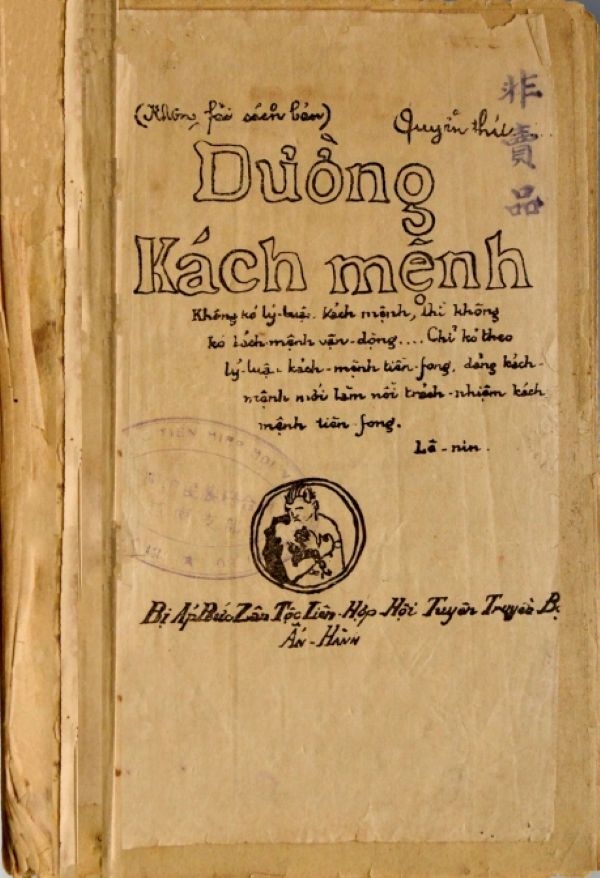 (Không fải sách bán)
Quyển thứ
非賣品
Dường
Kách mệnh
Không kó lý-luận kách mệnh, thì không
kó kách mệnh vận-động.... Chỉ kó theo
lý-luận kách-mệnh tiền-fong, đảng kách-
mệnh mới làm nổi trách-nhiệm kách
mệnh tiền-fong.
Lê-nin.
Bị Áp Bức Zân Tộc Liên-Hợp-Hội Tuyên Truyền
Ấn-Hành